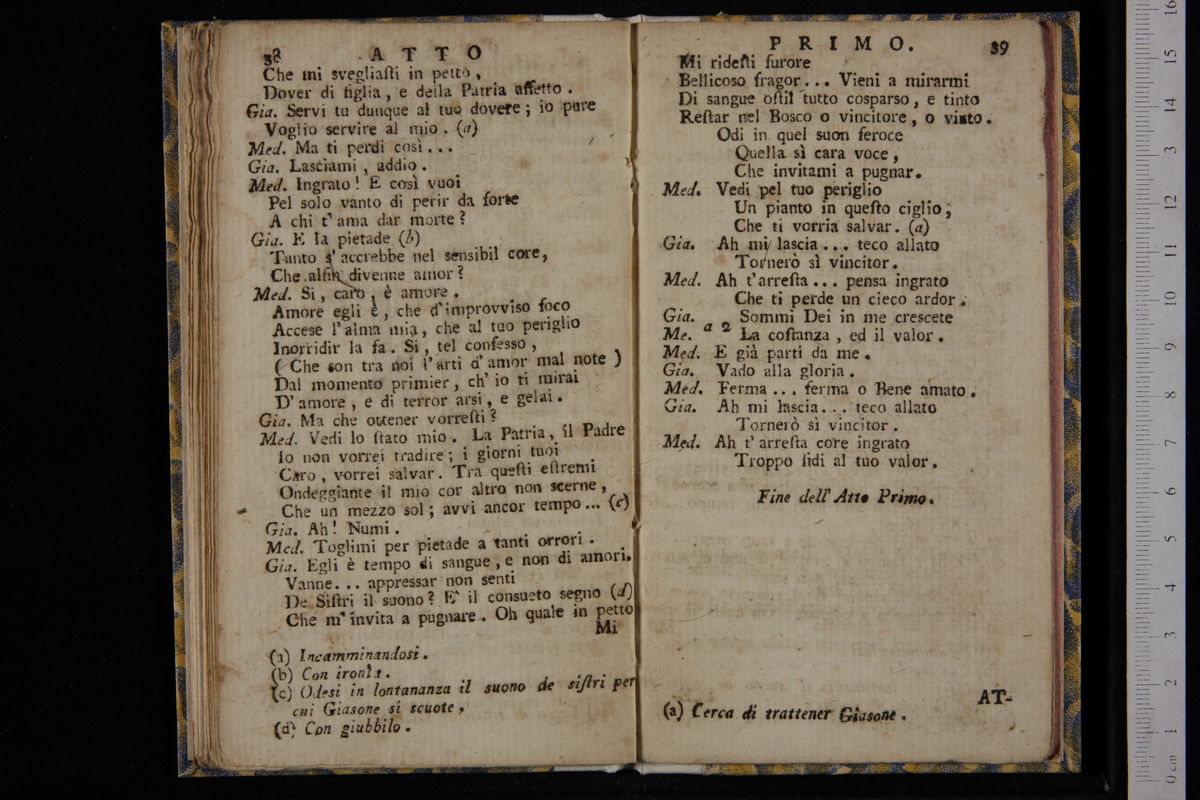 38 ATTO
Che mi svegliaſti in petto,
Dover di figlia, e della Patria affetto.
Gia. Servi tu dunque al tuo dovere; io pure
Voglio servire al mio. (a)
Med. Ma ti perdi così...
Gia. Lasciami, addio.
Med. Ingrato! E così vuoi
Pel solo vanto di perir da forte
A chi t'ama dar morte?
Gia. E la pietade (b)
Tanto s'accrebbe nel sensibil core,
Che alfin divenne amor?
Med. Si, caro, è amore.
Amore egli è, che d'improvviso foco
Accese l'alma mia, che al tuo periglio
Inorridir la fa. Si, tel confesso,
(Che son tra noi l'arti d'amor mal note)
Dal momento primier, ch'io ti mirai
D'amore, e di terror arsi, e gelai.
Gia. Ma che ottener vorreſti?
Med. Vedi lo ſtato mio. La Patria, il Padre
Io non vorrei tradire; i giorni tuoi
Caro, vorrei salvar. Tra queſti eſtremi
Ondeggiante il mio cor altro non scerne,
Che un mezzo sol; avvi ancor tempo... (c)
Gia. Ah! Numi.
Med. Toglimi per pietade a tanti orrori.
Gia. Egli è tempo di sangue, e non di amori.
Vanne... appressar non senti
De Siſtri il suono? E' il consueto segno (d)
Che m'invita a pugnare. Oh quale in petto
Mi
(a) Incamminandosi.
(b) Con ironìa.
(c) Odesi in lontananza il suono de siſtri per
cui Giasone si scuote,
(d) Con giubbilo.
PRIMO. 39
Mi rideſti furore
Bellicoso fragor... Vieni a mirarmi
Di sangue oſtil tutto cosparso, e tinto
Reſtar nel Bosco o vincitore, o vinto.
Odi in quel suon feroce
Quella sì cara voce,
Che invitami a pugnar.
Med. Vedi pel tuo periglio
Un pianto in queſto ciglio;
Che ti vorria salvar. (a)
Gia. Ah mi lascia... teco allato
Tornerò sì vincitor.
Med. Ah t'arreſta... pensa ingrato
Che ti perde un cieco ardor.
Gia. Sommi Dei in me crescete
Me. a 2 La coſtanza, ed il valor.
Med. E già parti da me.
Gia. Vado alla gloria.
Med. Ferma... ferma o Bene amato.
Gia. Ah mi lascia... teco allato
Tornerò sì vincitor.
Med. Ah t'arreſta core ingrato
Troppo fidi al tuo valor.
Fine dell'Atto Primo.
AT-
(a) Cerca di trattener Giasone.
16
15
14
13
12
11
10
9
8
7
6
5
4
3
2
1
0 cm